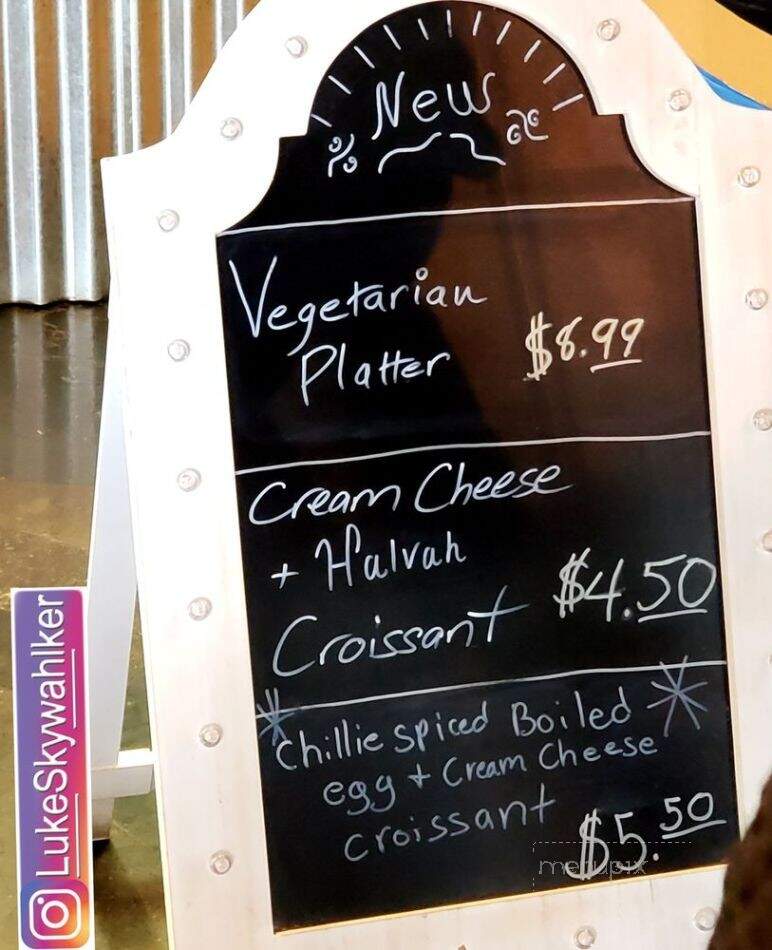 New
Vegetarian
Platter $8.99
Cream Cheese
+ Halvah
Croissant $4.50
Chillie spiced Boiled
egg + Cream Cheese
croissant
$5.50
menupix
LukeSkywahlker